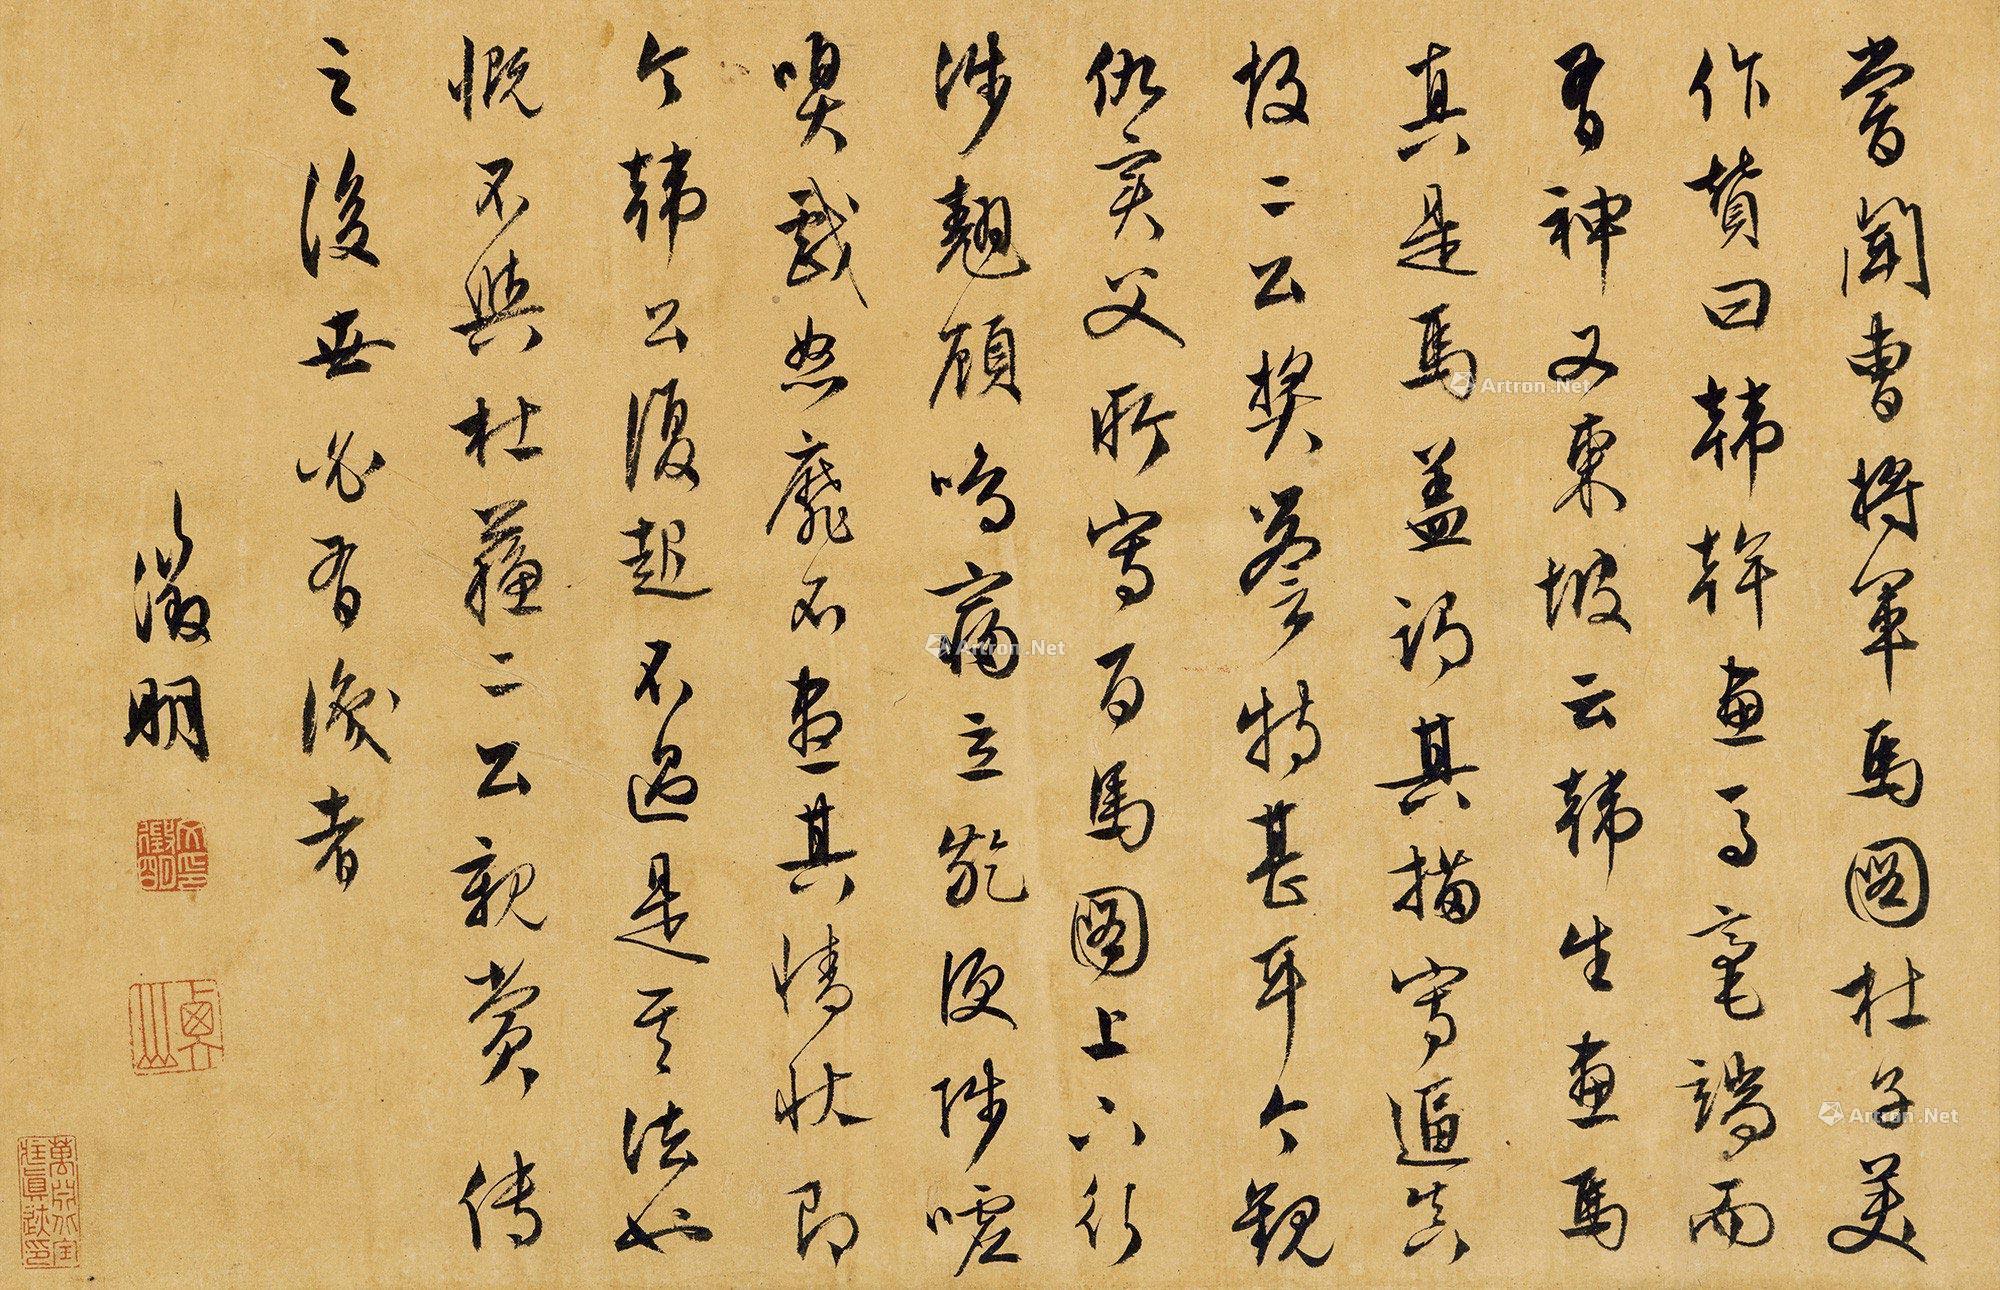 嘗聞曹將軍馬圖杜子美
作贊曰韓幹畫馬毫端而
有神又東坡云韓生畫馬
真是馬蓋謂其描寫逼真
故二公獎譽特甚耳今觀
仇實父所寫百馬圖上下行
涉翹顧鳴嘶立齕沒陟嘘
嗅戲怒靡不盡其情狀即
今韓公復起不過是其法也
慨不與杜蘇二公親賞傳
之後世必有識者
徵明
Artron.Net
Artron.Net
Artron.Net